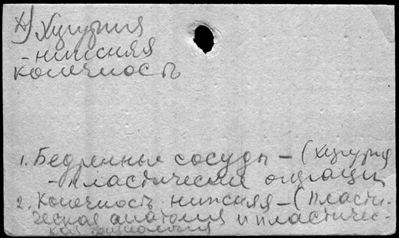 х) Хирургия
- нижняя
конечность
1. Бедренные сосуды - (Хирургия
- пластические операции
2. Конечность нижняя - (Пласти-
ческая анатомия и пластичес-
кая